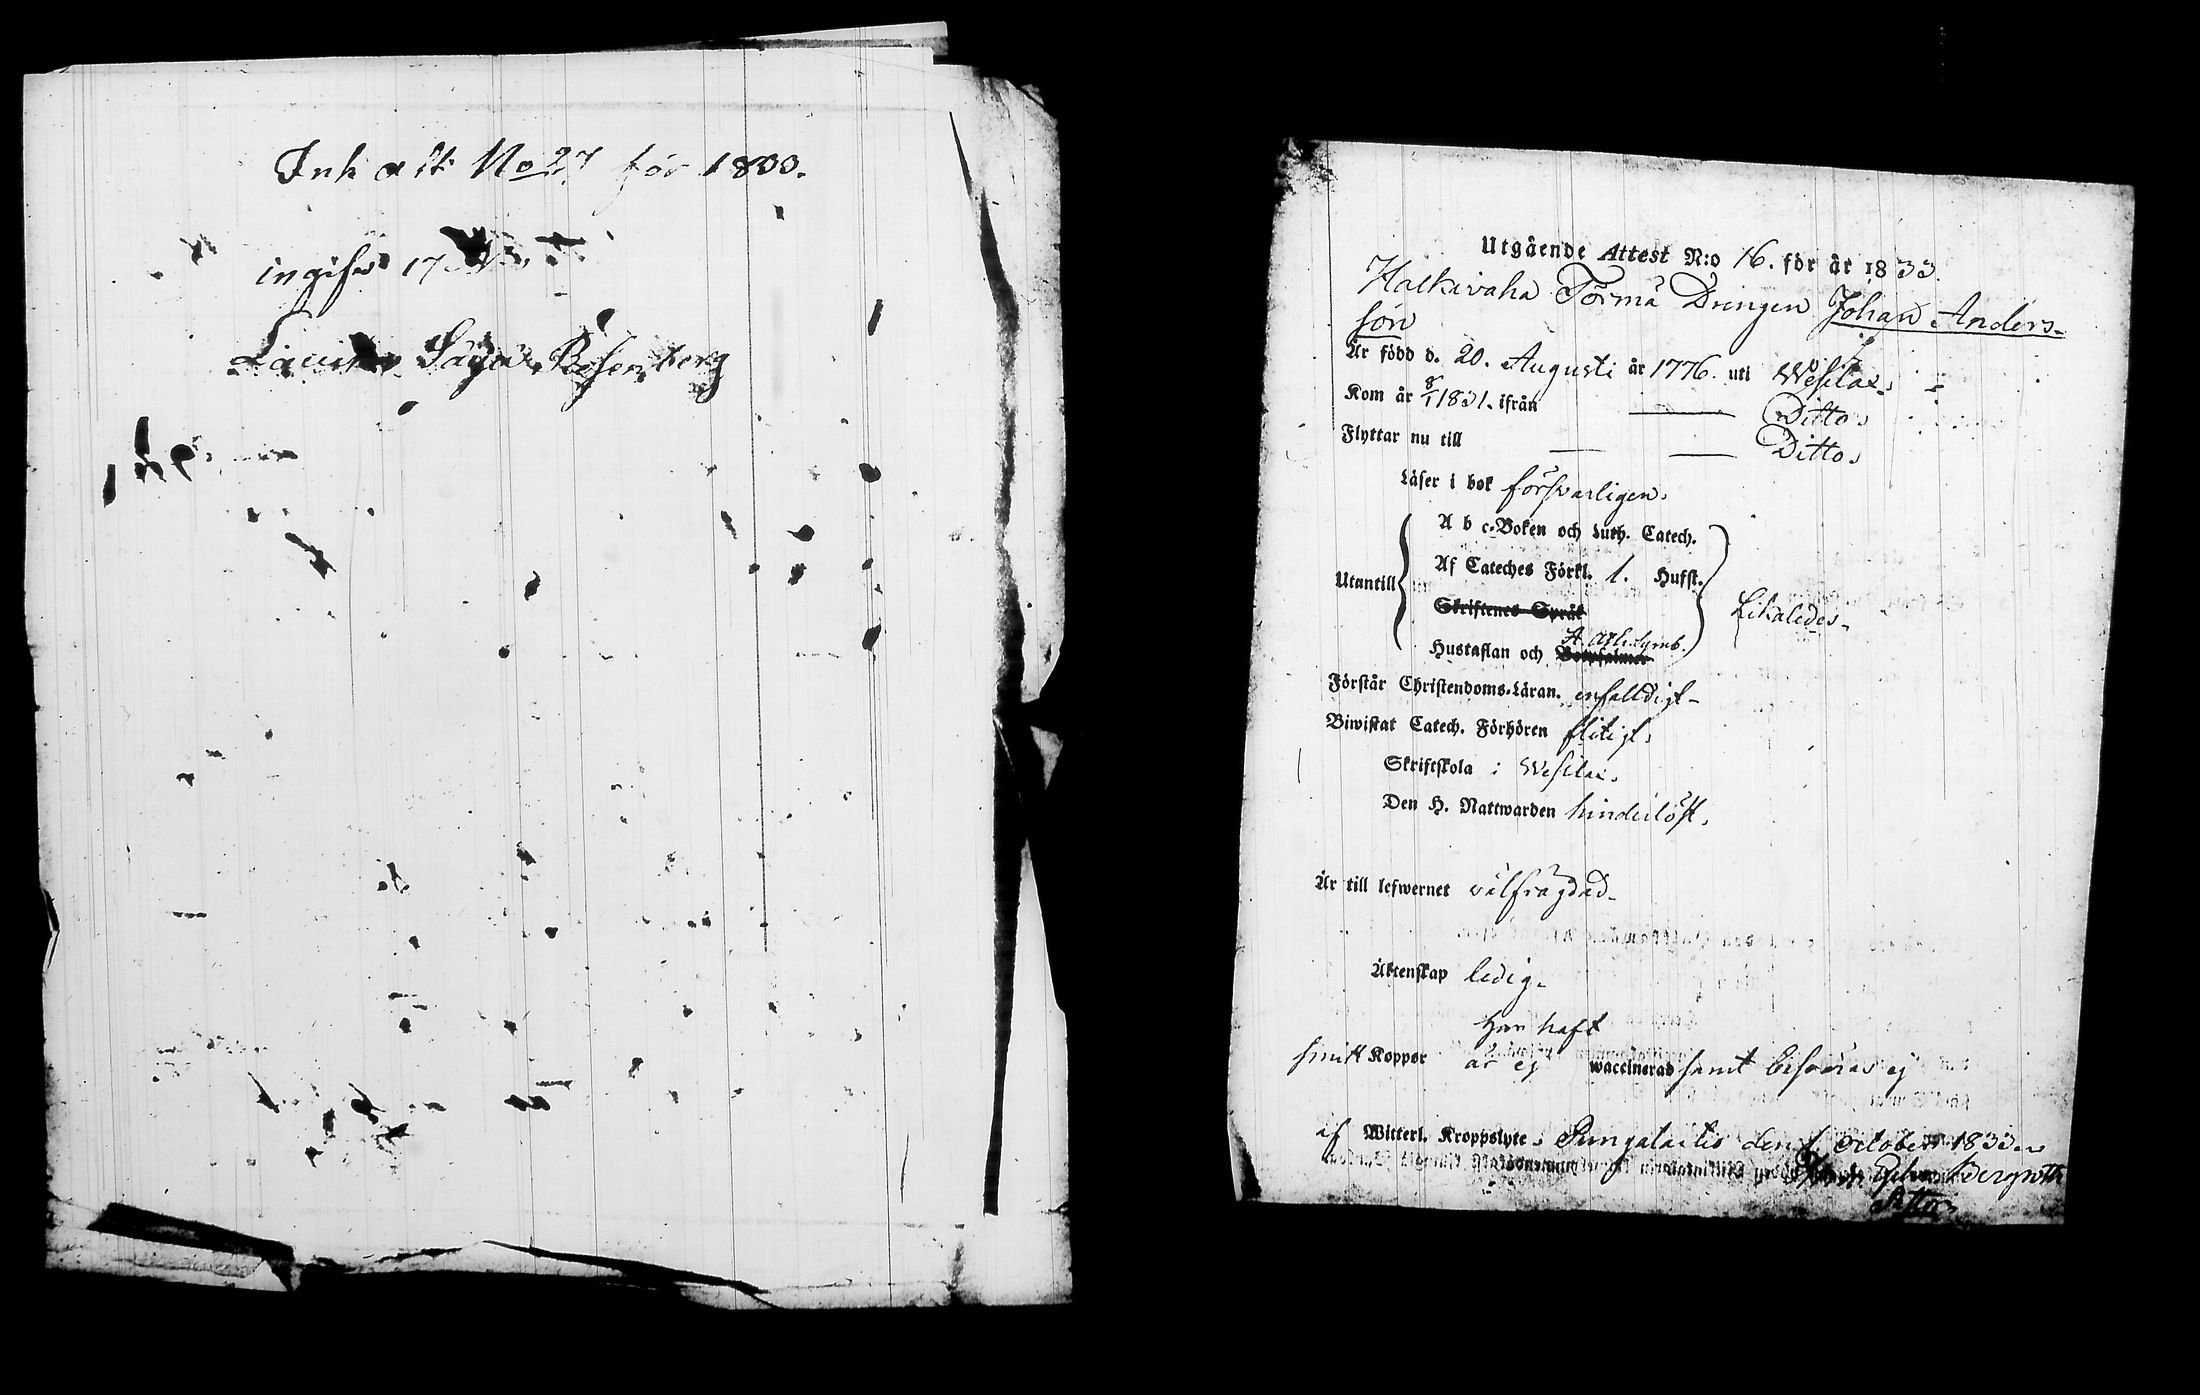 Ink att No 27 för 1833.
ingifer 17
Säga Rosenberg
Utgående Attest N:o 16. för år 1833.
Halkivaha Törmä Drengen Johan Anders-
son
Är född d. 20. Augusti år 1776. uti Wesilax.
Kom år 8/1 1831. ifrån Ditto.
Flyttar nu till Ditto.
Läser i bok försvarligen.
A b c-Boken och Luth. Catech.
Af Cateches Förkl. 1. Hufst.
Utantill
Skriftenes Språk
Likaledes.
A. Ath. Symb.
Hustaflan och Botpsalmer
Förstår Christendoms-Läran. enfalldigt-
Biwistat Catech. Förhören flitigt.
Skriftskola i Wesilax.
Den H. Nattwarden hinderlöst.
Är till lefwernet välfrägdad-
Äktenskap ledig.
Har haft
Koppor är ej waccinerad samt besväras ej
af Witterl. Kroppslyte. den October 1833.
Johan Bergroth